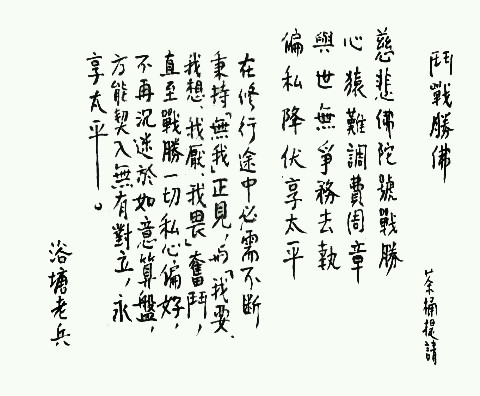 鬥戰勝佛
茶桶提請
慈悲佛陀號戰勝
心猿難調費周章
與世無爭務去執
偏私降伏享太平
在修行途中必需不斷
秉持「無我」正見，与「我要、
我想、我厭、我畏」奮鬥，
直至戰勝一切私心偏好，
不再沉迷於如意算盤，
方能契入無有對立，永
享太平——。
浴塘老兵